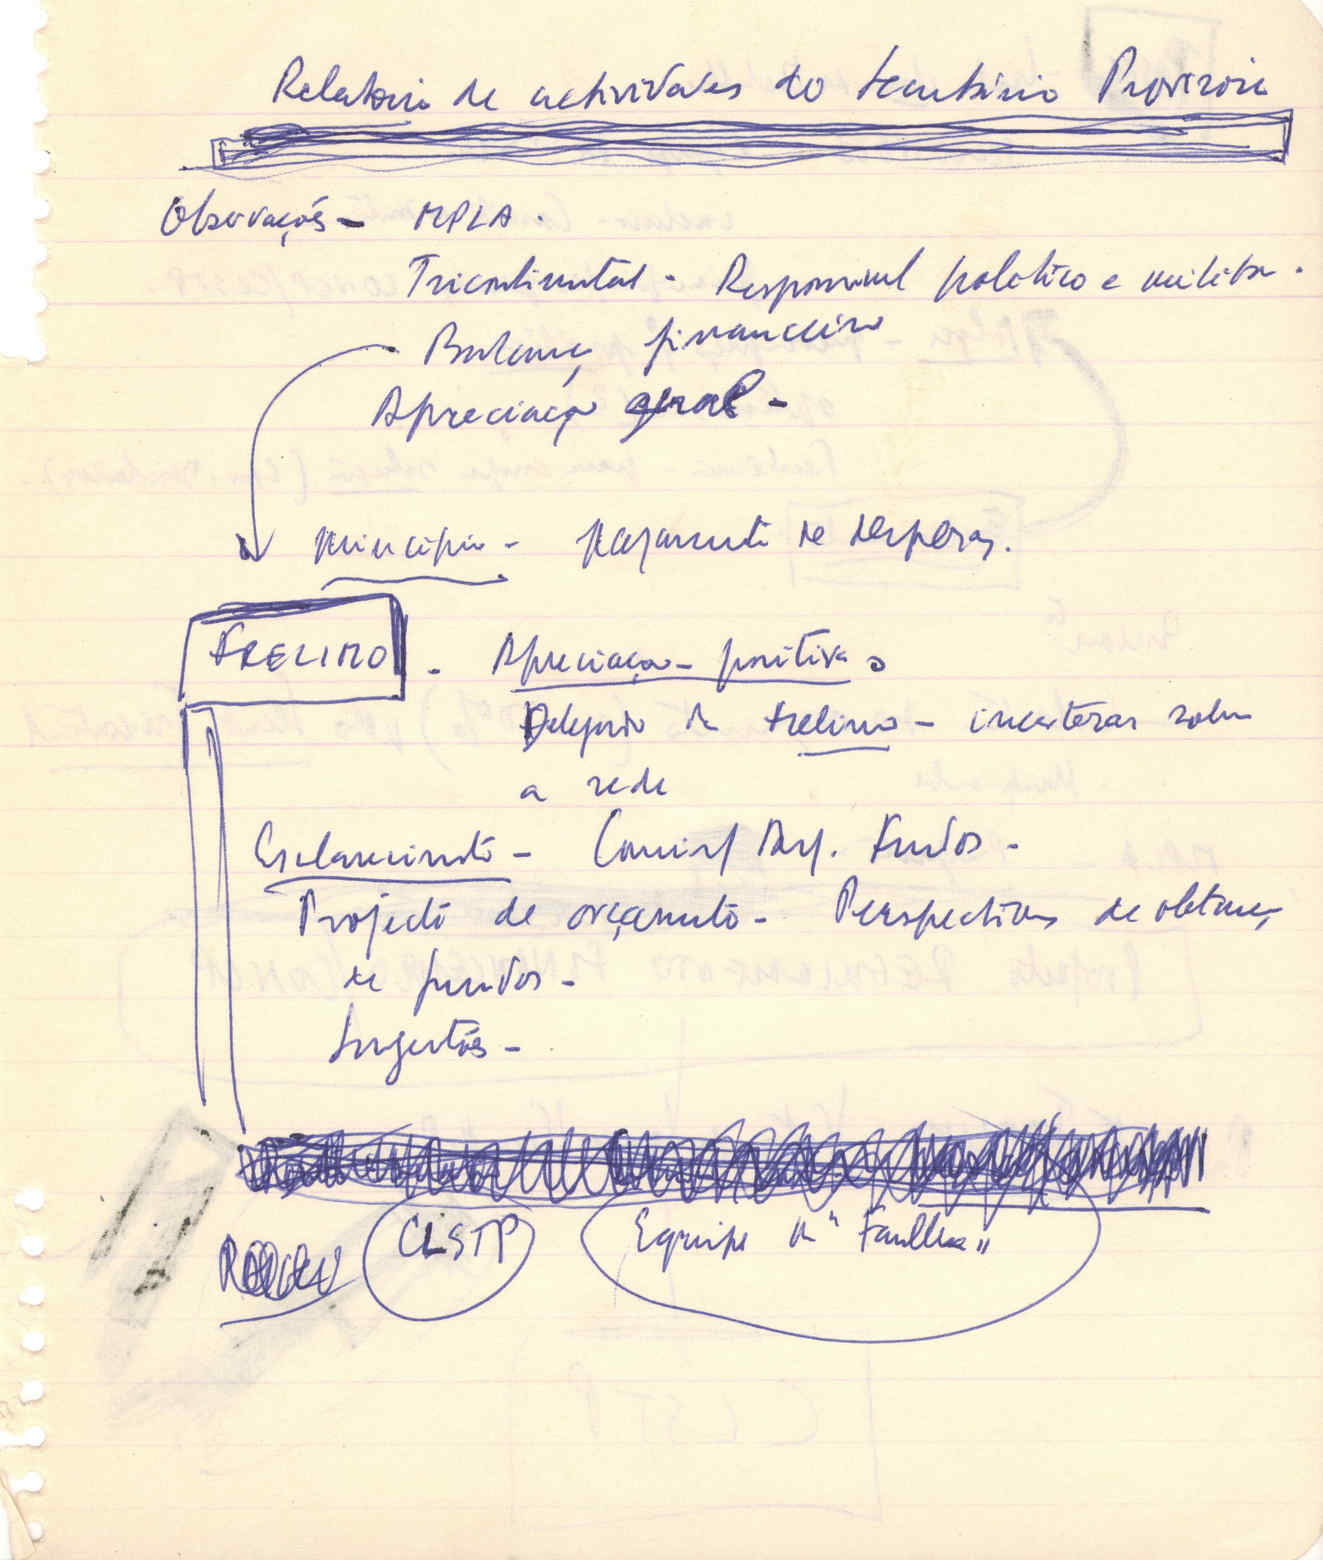 Relatório de actividades do Secretário Provisório
Observações - MPLA.
Tricontinental - Responsável político e militar.
Balanço financeiro
Apreciação geral -
princípio - pagamento de despesas.
FRELIMO - Apreciação - positiva.
Delegado da Frelimo - incertezas sobre
a rede
Esclarecimento - Fundos -
Projecto de orçamento - Perspectivas de obtenção
de fundos -
Sugestões -
CLSTP Equipe